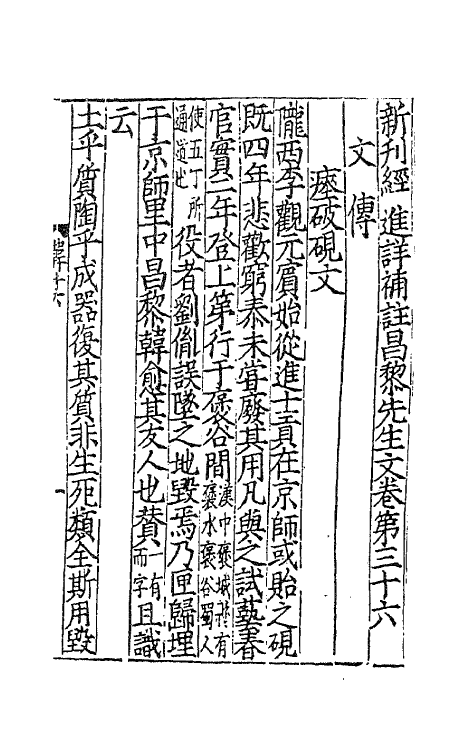 新刊經進詳補註昌黎先生文卷第三十六
文 傳
瘞破硯文
隴西李觀元賓始從進士貢在京師或貽之硯
既四年悲歡窮泰未嘗廢其用凡與之試藝春
官實二年登上第行于褒谷間漢中褒城縣有褒水褒谷蜀人
使五丁所通道也役者劉胤誤墜之地毀焉乃匣歸埋
于京師里中昌黎韓愈其友人也贊一有而字且識
云
土乎質陶乎成器復其質非生死類全斯用毀
一